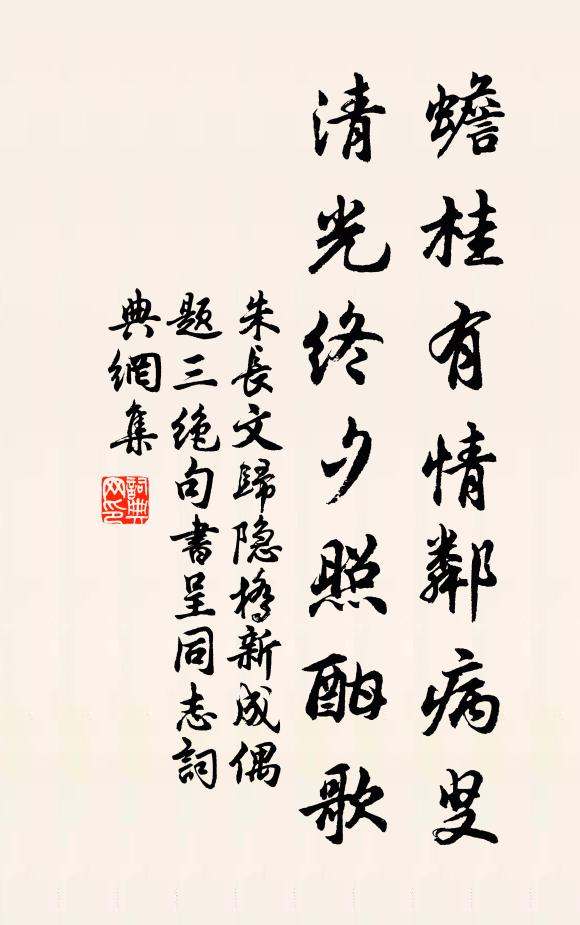 蟾桂有情鄰病叟
清光終夕照酣歌
朱長文歸隐橋新成偶
题三绝句書呈同志詞
典網集
詞典
网印